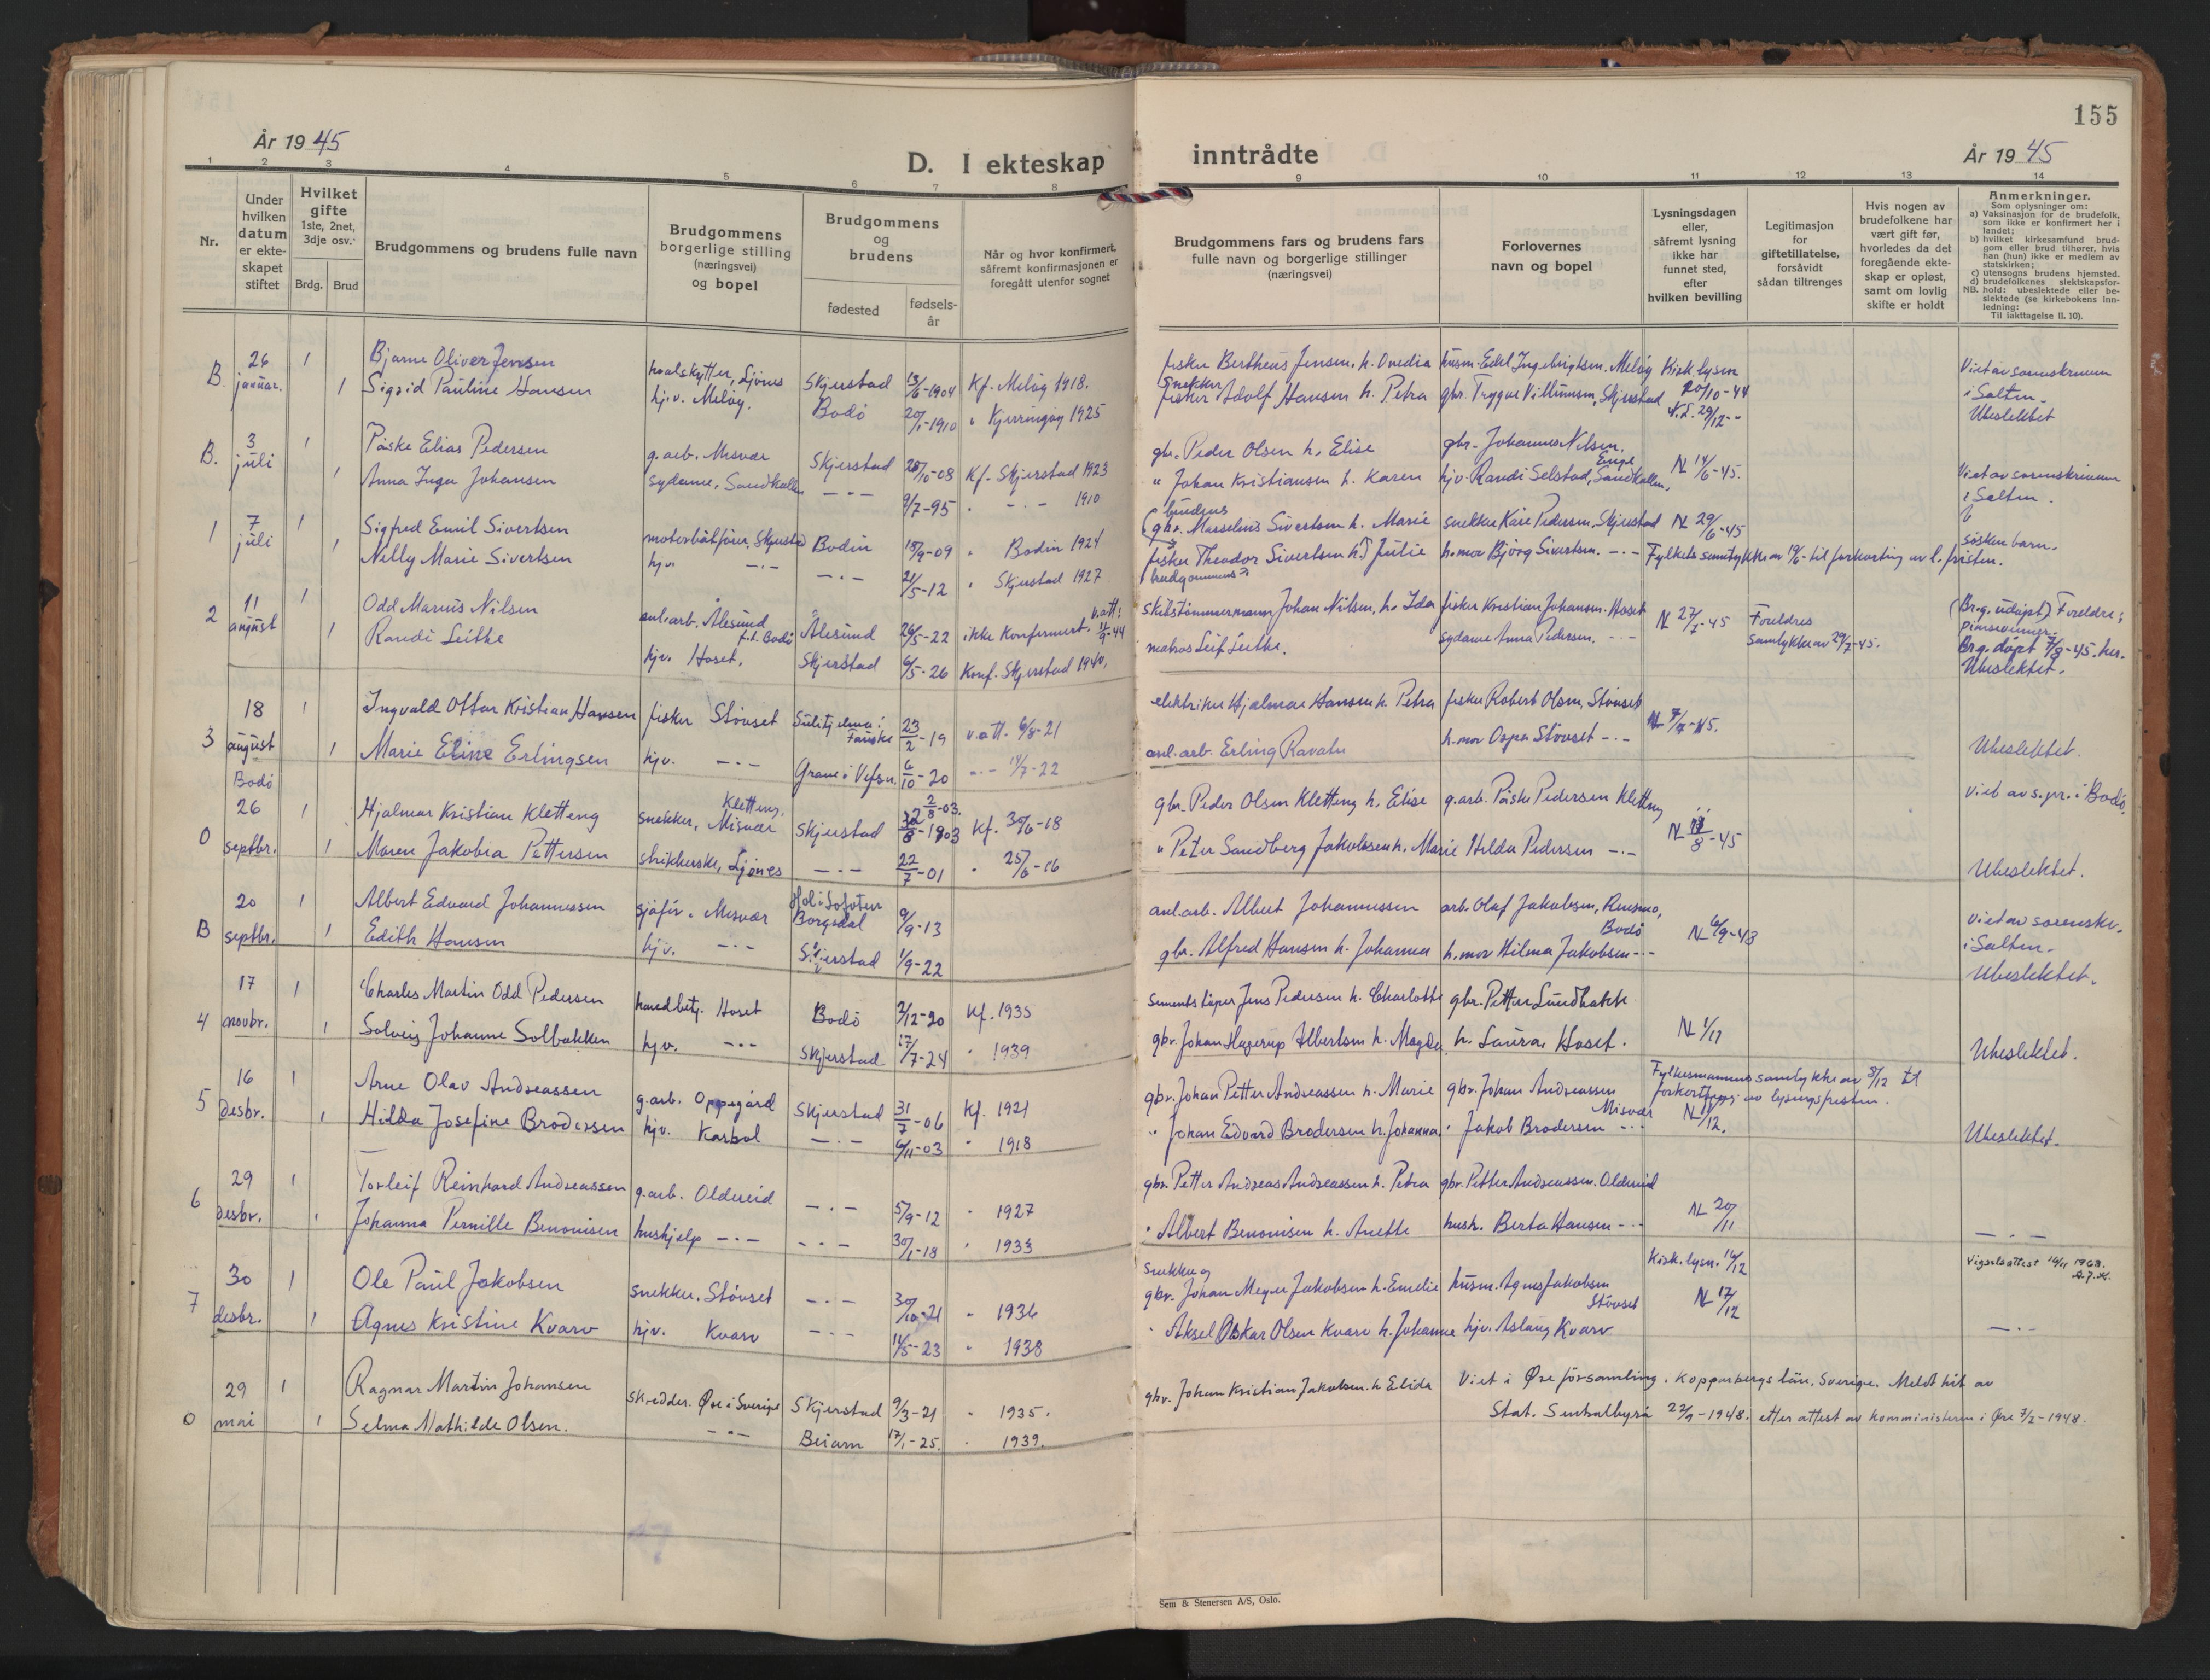 155
År 1945
D. I ekteskap
inntrådte
År 1945
1 2 3 4 5 6 7 8 9 10 11 12 13 14
Nr.
Under hvilken datum er ekteskapet stiftet
Hvilket gifte 1ste, 2net, 3dje osv.
Brdg. Brud
Brudgommens og brudens fulle navn
Brudgommens borgerlige stilling (næringsvei) og bopel
Brudgommens og brudens
fødested
fødsels-år
Når og hvor konfirmert, såfremt konfirmasjonen er foregått utenfor sognet
Brudgommens fars og brudens fars fulle navn og borgerlige stillinger (næringsvei)
Forlovernes navn og bopel
Lysningsdagen eller, såfremt lysning ikke har funnet sted, efter hvilken bevilling
Legitimasjon for giftetillatelse, forsåvidt sådan tiltrenges
Hvis nogen av brudefolkene har vært gift før, hvorledes da det foregående ekteskap er opløst, samt om lovlig skifte er holdt
Anmerkninger.
Som oplysninger om:
a) Vaksinasjon for de brudefolk, som ikke er konfirmert her i landet;
b) hvilket kirkesamfund brudgom eller brud tilhører, hvis han (hun) ikke er medlem av statskirken;
c) utensogns brudens hjemsted.
d) brudefolkenes slektskapsforhold: ubeslektede eller beslektede (se kirkebokens innledning:
NB.
Til iakttagelse II. 10).
B. 26 januar. 1 Bjarne Oliver Jensen hvalskytter, Ljønes Skjerstad 13/6-1904 Kf. Meløy 1918. fisker Bertheus Jensen, h. Ovedia husm. Edel Ingebrigtsen, Meløy Kirk lysen 20/10-44 Viet av sorenskriveren
1 Sigrid Pauline Hansen hjv. Meløy. Bodö 20/1-1910 " Kjerringøy 1925 snekker fisker Adolf Hansen h. Petra gbr. Trygve V. Munnsen, Skjerstad N.L. 29/12-- i Salten. Ubeslektet
B. 3 juli 1 Påske Elias Pedersen g.arb. Misvær Skjerstad 28/10-08 Kf. Skjerstad 1923 gbr. Peder Olsen h. Elise gbr. Johannes Nilsen, Enge N 14/6-45. Viet av sorenskriveren
1 Anna Inga Johansen sydame, Sandkollen -.- 9/7-95 " -.- 1910 " Johan Kristiansen h. Karen hjv. Randi Selstad, Sandkollen, i Salten.
1 7 juli 1 Sigfred Emil Sivertsen motorbåtfører, Skjerstad Bodin 18/9-09 " Bodin 1924 brudens gbr. Marselius Sivertsen h. Marie snekker Kåre Pedersen, Skjerstad N 29/6-45 søskenbarn.
1 Nelly Marie Sivertsen hjv. -.- -.- 21/5-12 " Skjerstad 1927 fisker Theodor Sivertsen h. Julie brudgommens h.mor Bjørg Sivertsen. -.- Fylkets samtykke av 19/6 til forkorting av l.fristen.
2 11 august 1 Odd Marius Nilsen anl.arb. Ålesund f.t. Bodö Ålesund 26/5-22 ikke Konfirmert. v.att: 11/9-44 skibstömmermann Johan Nilsen, h. Ida fisker Kristian Johansen. Hoset N 27/7-45 Foreldres samtykke av 29/7-45. (Br.g. udöpt) Foreldre: pinsevenner.
1 Randi Leithe hjv. Hoset. Skjerstad 6/5-26 Konf. Skjerstad 1940. matros Leif Leithe. sydame Anna Pedersen. -.- Br.g. döpt 7/8-45. her. Ubeslektet.
3 18 august 1 Ingvald Ottar Kristian Hansen fisker Støvset Sulitjelma: Fauske 23/2-19 v.att. 6/8-21 elektriker Hjalmar Hansen h. Petra fisker Robert Olsen, Støvset N 7/7-45.
1 Marie Eline Erlingsen hjv. -.- Grane i Vefsn. 6/10-20 -.- 14/7-22 anl.arb. Erling Ravatn h.mor Ospa Støvset -.- Ubeslektet.
Bodö
0 26 septbr. 1 Hjalmar Kristian Kletteng snekker, Kletteng, Misvær Skjerstad 2/8-03. 22/8-1903 Kf. 30/6-18 gbr. Peder Olsen Kletteng h. Elise g.arb. Påske Pedersen Kletteng N 11/8-45 viet av s.pr. i Bodö.
1 Maren Jakobea Pettersen strikkerske, Ljønes -.- 22/7-01 " 25/6-16 " Peter Sandberg Jakobsen h. Marie Hilda Pedersen -.- Ubeslektet.
B 20 septbr. 1 Albert Edvard Johannessen sjåfør. Misvær Hol i Lofoten Borgsdal 9/9-13 anl.arb. Albert Johannessen arb. Olaf Jakobsen, Rusmo, Bodö N 6/9-43 viet av sorenskr.
1 Edith Hansen hjv. -.- Skjerstad 1/9-22 gbr. Alfred Hansen h. Johanna h.mor Hilma Jakobsen -.- i Salten. Ubeslektet.
4 17 novbr. 1 Charles Martin Odd Pedersen Hoset Bodö 2/12-20 Kf. 1935 sementstøper Jens Pedersen h. Charlotte gbr. Petter Lundbakk N 1/11
1 Solveig Johanne Solbakken hjv. -.- Skjerstad 17/7-24 " 1939 gbr. Johan Hagerup Albertsen h. Magda h. Laura, Hoset. Ubeslektet.
5 16 desbr. 1 Arne Olav Andreassen g.arb. Oppegård Skjerstad 31/7-06 Kf. 1921 gbr. Johan Petter Andreassen h. Marie gbr. Johan Andreassen Misvær Fylkesmannens samtykke av 8/12 til forkorting av lysingsfristen.
1 Hilda Josefine Brodersen hjv. Karbøl -.- 6/11-03 " 1918 " Johan Edvard Brodersen h. Johanna. " Jakob Brodersen -.- N 11/12. Ubeslektet.
6 29 desbr. 1 Torleif Reinhard Andreassen g.arb. Oldereid -.- 5/9-12 " 1927 gbr. Petter Andreas Andreassen h. Petra gbr. Petter Andreassen. Oldereid N 20/11
1 Johanna Pernille Benonisen hushjelp -.- -.- 30/1-18 " 1933 " Albert Benonisen h. Anette hush. Berta Hansen -.- -.-
7 30 desbr. 1 Ole Paul Jakobsen snekker. Støvset -.- 30/10-21 " 1936 snekker og gbr. Johan Meyer Jakobsen h. Emelie husm. Agnes Jakobsen Støvset Kirk.lysn. 16/12 N 17/12 Vigselsattest 14/11 1968.
1 Agnes Kristine Kvarv hjv. Kvarv -.- 11/5-23 " 1938 " Aksel Oskar Olsen Kvarv h. Johanne hjv. Aslaug Kvarv -.-
0 29 mai 1 Ragnar Martin Johansen skredder. Øre i Sverige Skjerstad 9/3-21 " 1935. gbr. Johan Kristian Jakobsen h Elida Viet i Øre församling. Kopparbergs län, Sverige. Meldt hit av
1 Selma Mathilde Olsen. -.- Beiarn 17/1-25. " 1939. Stat. Sentralbyrå 22/9-1948. etter attest av komministeren i Øre 7/2-1948.
Sem & Stenersen A/S, Oslo.